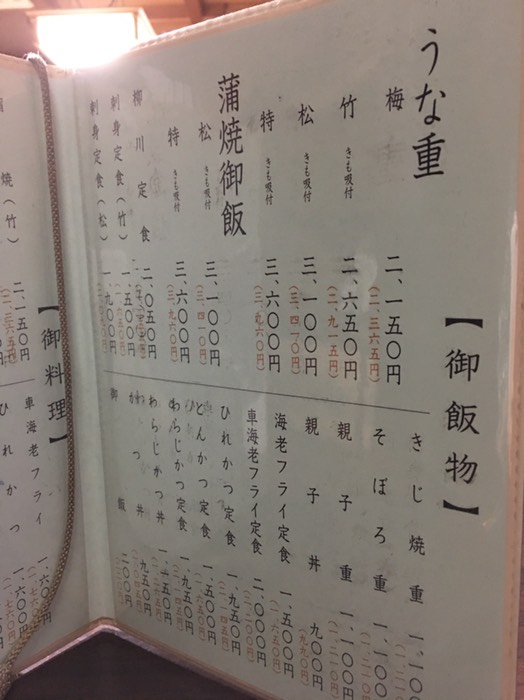 【御飯物】
うな重
梅 二、一五〇円
（二、三六五円）
竹 きも吸付 二、六五〇円
（二、九一五円）
松 きも吸付 三、一〇〇円
（三、四一〇円）
特 きも吸付 三、六〇〇円
（三、九六〇円）
蒲焼御飯
松 きも吸付 三、一〇〇円
（三、四一〇円）
特 きも吸付 三、六〇〇円
（三、九六〇円）
柳川定食 二、〇五〇円
刺身定食（竹） 一、五〇〇円
刺身定食（松） 一、九〇〇円
きじ焼重 一、一〇
そぼろ重 一、一〇〇
親子重 一、一〇〇円
（一、二一〇円）
親子丼 九〇〇円
（九九〇円）
海老フライ定食 一、五〇〇円
（一、六五〇円）
車海老フライ定食 二、〇〇〇円
（二、二〇〇円）
ひれかつ定食 一、九五〇円
（二、一四五円）
とんかつ定食 一、五〇〇円
（一、六五〇円）
わらじかつ定食 一、九五〇円
（二、一四五円）
わらじかつ丼 一、一五〇円
かつ丼 九五〇円
御飯 二〇〇円
【御料理】
焼（竹） 二、一五〇円
（二、三六五円）
車海老フライ 一、六〇
ひれかつ 一、六〇〇